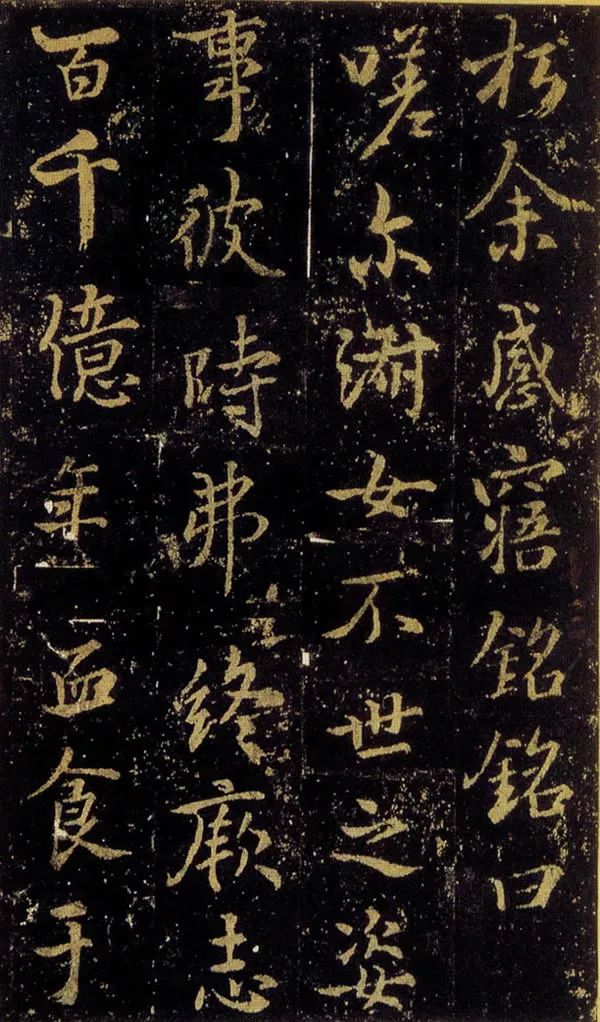 扵余感寤銘銘曰
嗟尔渊女不世之姿
事彼時弗終厥志
百千億年血食于